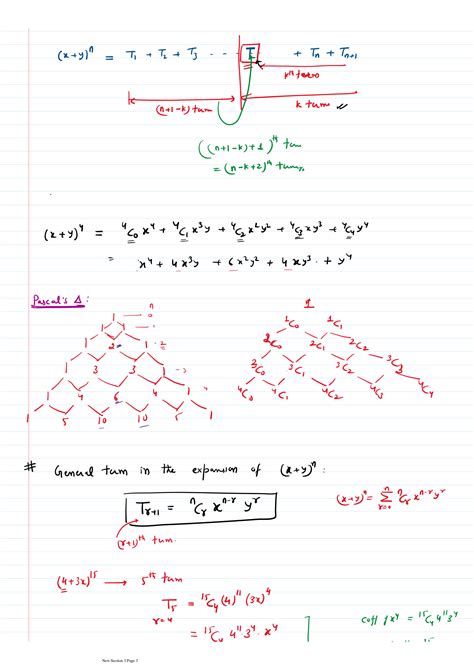 (x+y)ⁿ = T₁ + T₂ + T₃ ... T + Tₙ + Tₙ₊₁
kᵗʰ term
(n+1-k) term
k term
((n+1-k)+1)ᵗʰ term
= (n-k+2)ᵗʰ term
(x+y)⁴ = ⁴C₀ x⁴ + ⁴C₁ x³y + ⁴C₂ x²y² + ⁴C₃ xy³ + ⁴C₄ y⁴
= x⁴ + 4x³y + 6x²y² + 4xy³ + y⁴
Pascal's Δ:
n
1 0
1 1 1
1 2 1 2
1 3 3 1 3
1 4 6 4 1 4
1 5 10 10 5 1
1
¹C₀ ¹C₁
2C₀ 2C₁ ²C₂
³C₀ ³C₁ ³C₂ ³C₃
⁴C₀ ⁴C₁ ⁴C₂ ⁴C₃ ⁴C₄
# General term in the expansion of (x+y)ⁿ:
Tᵣ₊₁ = ⁿCᵣ xⁿ⁻ʳ yʳ
(x+y)ⁿ = Σⁿᵣ₌₀ ⁿCᵣ xⁿ⁻ʳ yʳ
(r+1)ᵗʰ term.
(4+3x)¹⁵ → 5ᵗʰ term
T₅ = ¹⁵C₄ (4)¹¹ (3x)⁴
r=4
= ¹⁵C₄ 4¹¹ 3⁴ · x⁴
coff x⁴ = ¹⁵C₄ 4¹¹ 3⁴
New Section 1 Page 5